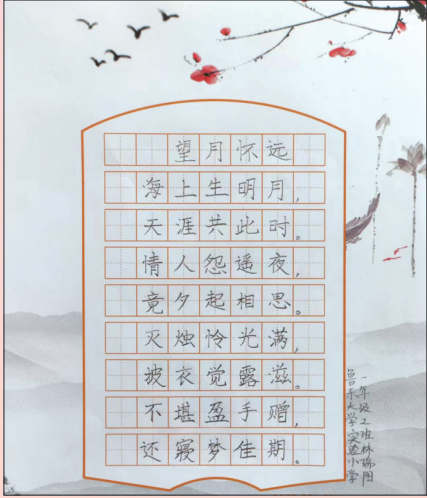 望月怀远
海上生明月，
天涯共此时。
情人怨遥夜，
竟夕起相思。
灭烛怜光满，
披衣觉露滋。
不堪盈手赠，
还寝梦佳期。
一年级2班林瑞阳
鲁东大学实验小学